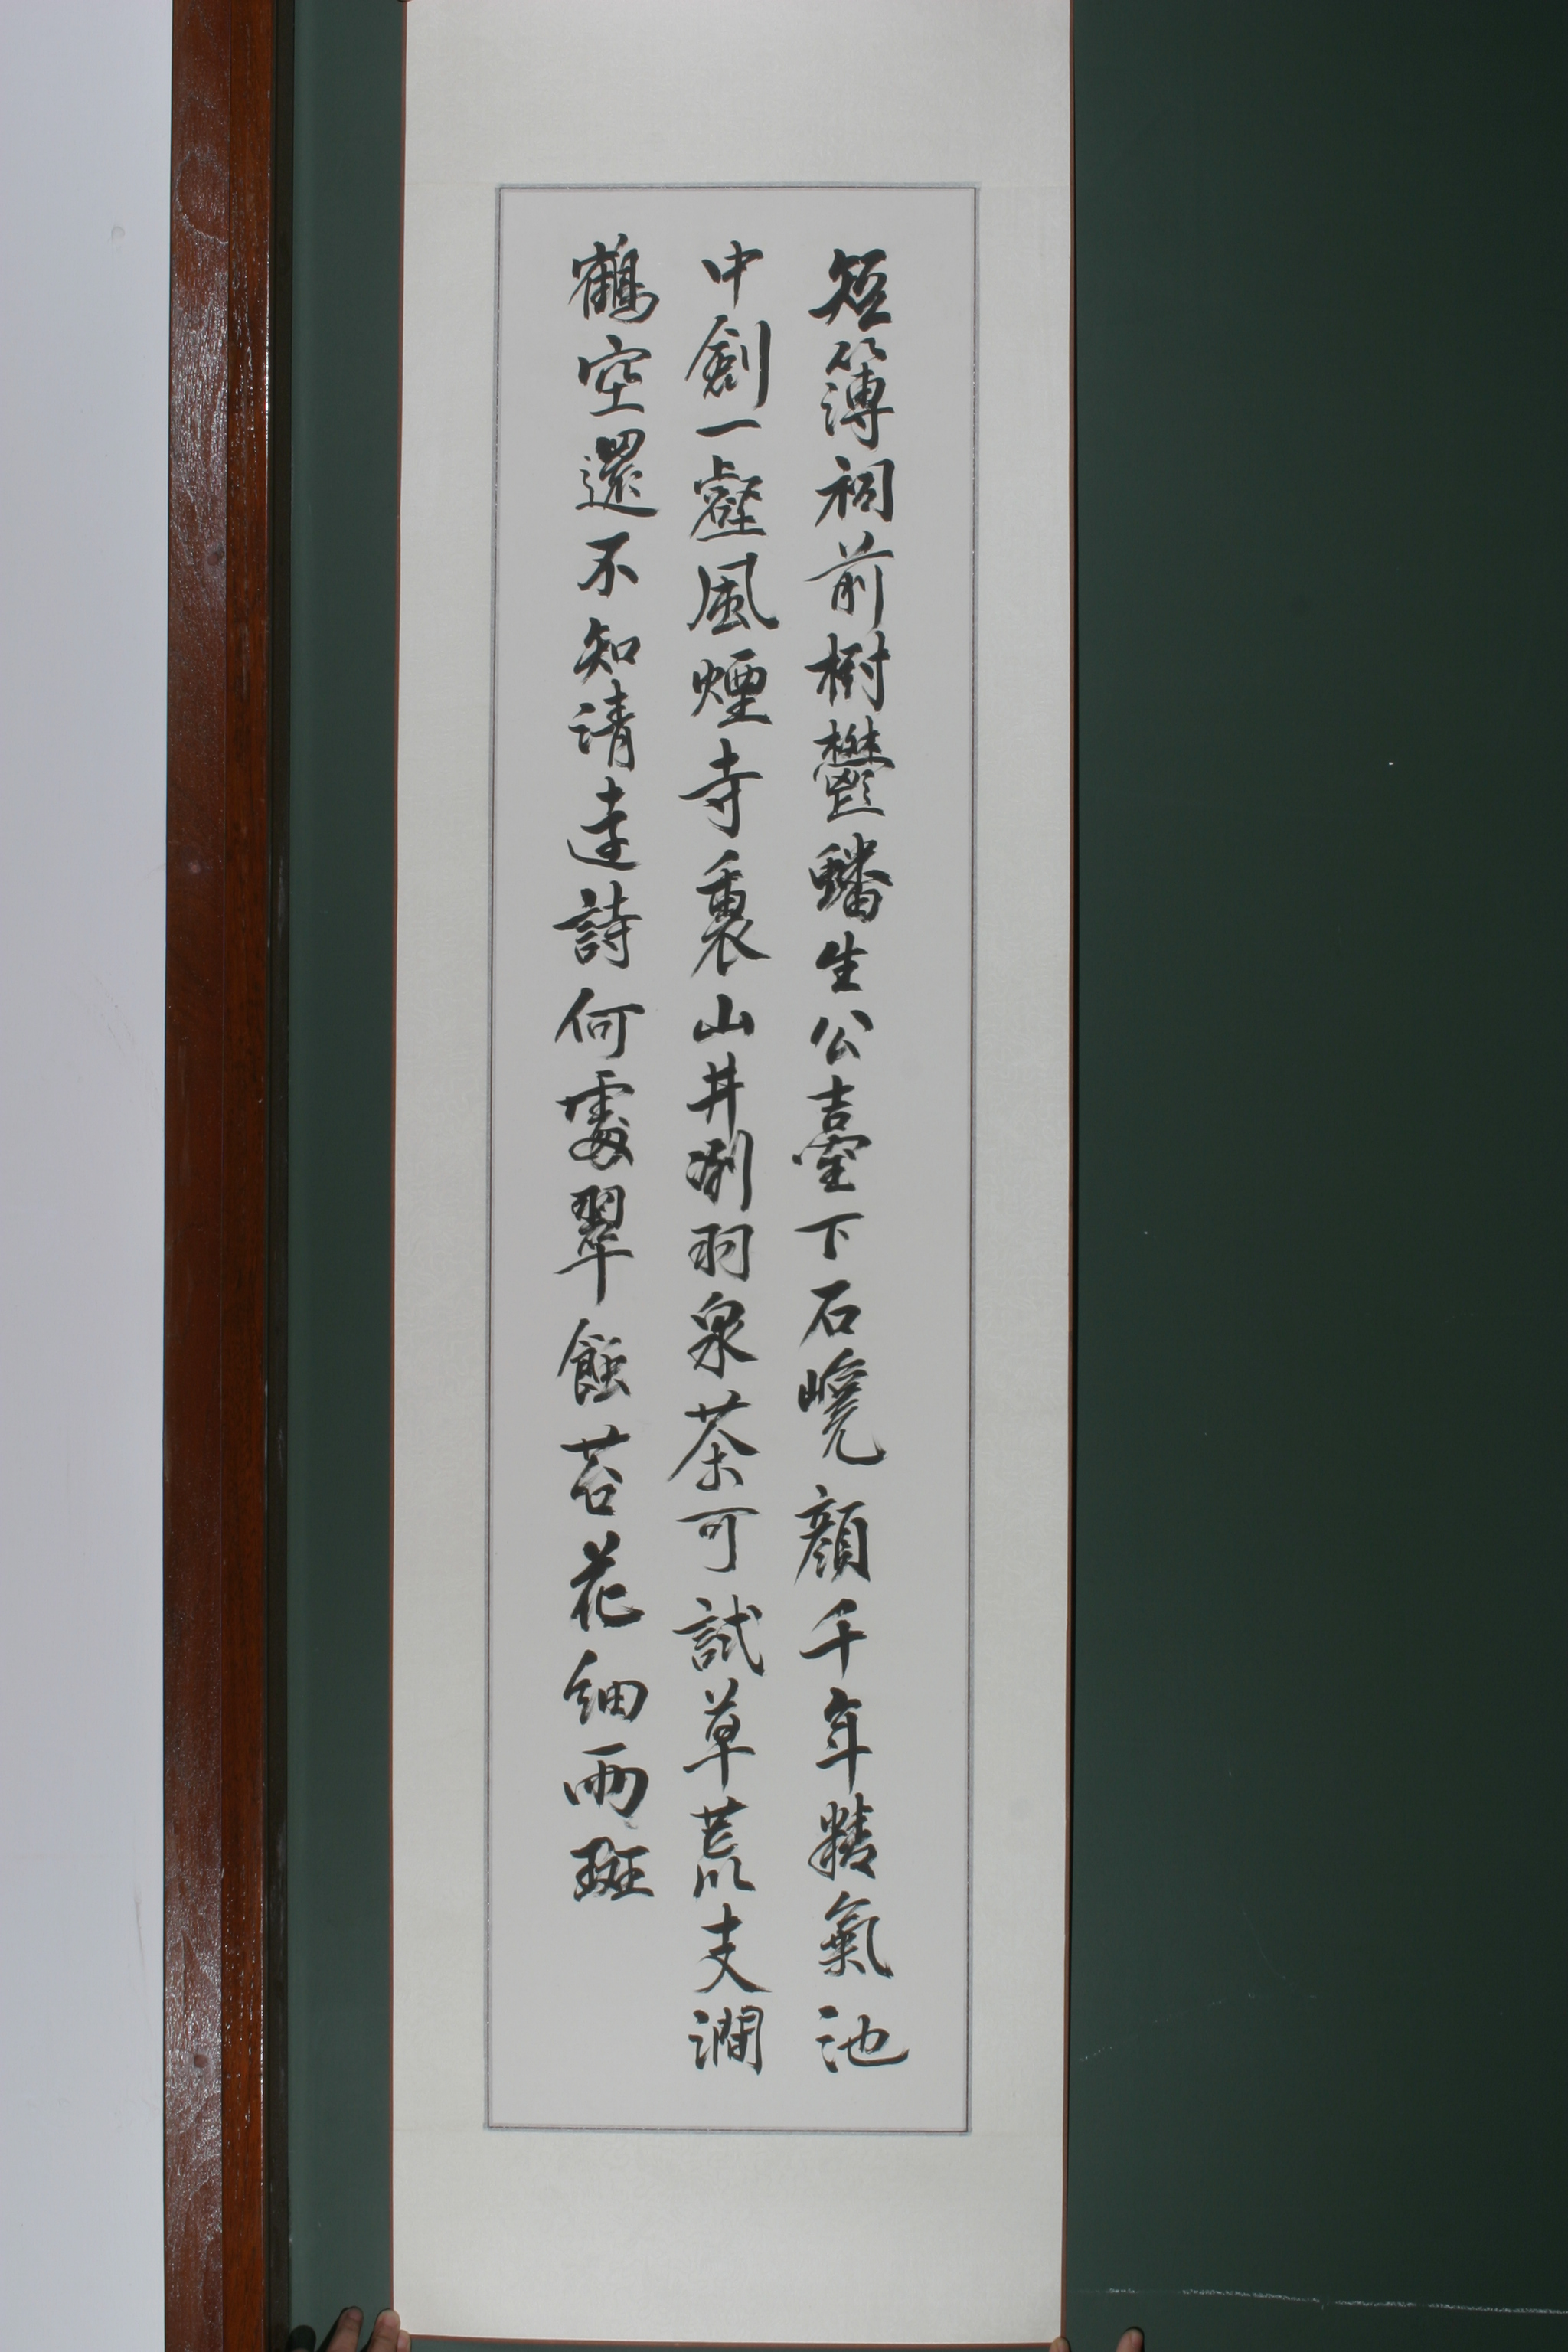 短簿祠前樹鬱蟠生公臺下石巉顔千年精氣池
中劍一壑風煙寺裏山井冽羽泉茶可試草荒支澗
鶴空還不知清遠詩何處翠蝕苔花細雨斑